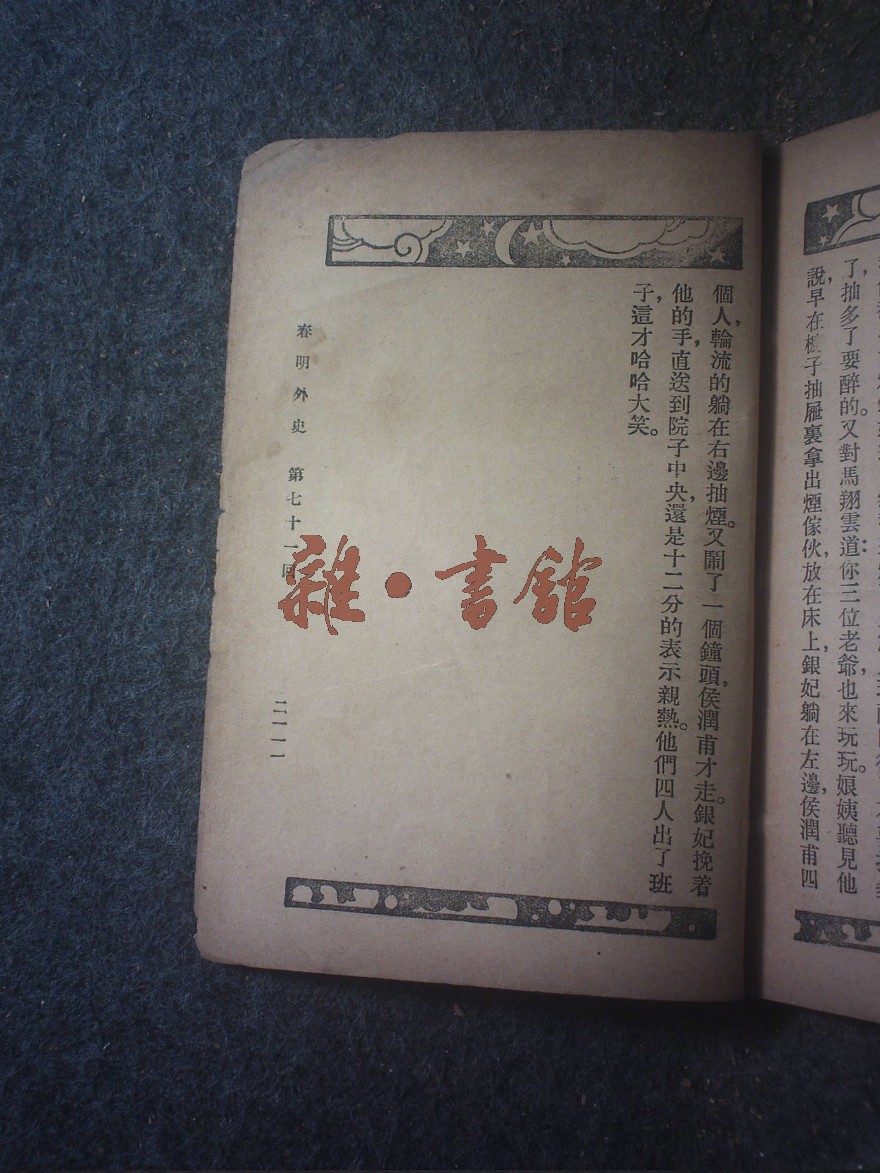 了，抽多了要醉的。又對馬翔雲道：你三位老爺，也來玩玩。娘姨聽見他
說，早在櫃子抽屜裏拿出煙傢伙，放在床上，銀妃躺在左邊，侯潤甫四
個人，輪流的躺在右邊抽煙。又鬧了一個鐘頭，侯潤甫才走。銀妃挽着
他的手，直送到院子中央，還是十二分的表示親熱。他們四人出了班
子，這才哈哈大笑。
春明外史 第七十一回
二一一一
雜·書館